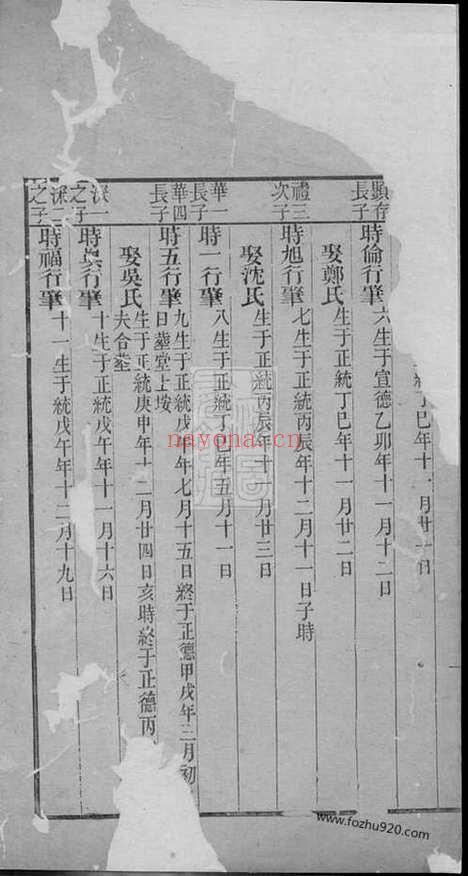 統丁巳年十一月廿一日
顯存長子
時倫行肇六生于宣德乙卯年十一月十二日
娶鄭氏生于正統丁巳年十一月廿二日
禮三次子
時旭行肇七生于正統丙辰年十二月十一日子時
娶沈氏生于正統丙辰年十月廿三日
華一長子
時一行肇八生于正統丁巳年五月十一日
華四長子
時五行肇九生于正統戊午年七月十五日終于正德甲戌年三月初
日塟堂上坟
娶吳氏生于正統庚申年十二月廿四日亥時終于正德丙
夫合塟
深一之子
時行肇十生于正統戊午年十一月十六日
深二之子
時福行肇十一生于正統戊午年十二月十九日
nayona.cn
www.fozhu920.com